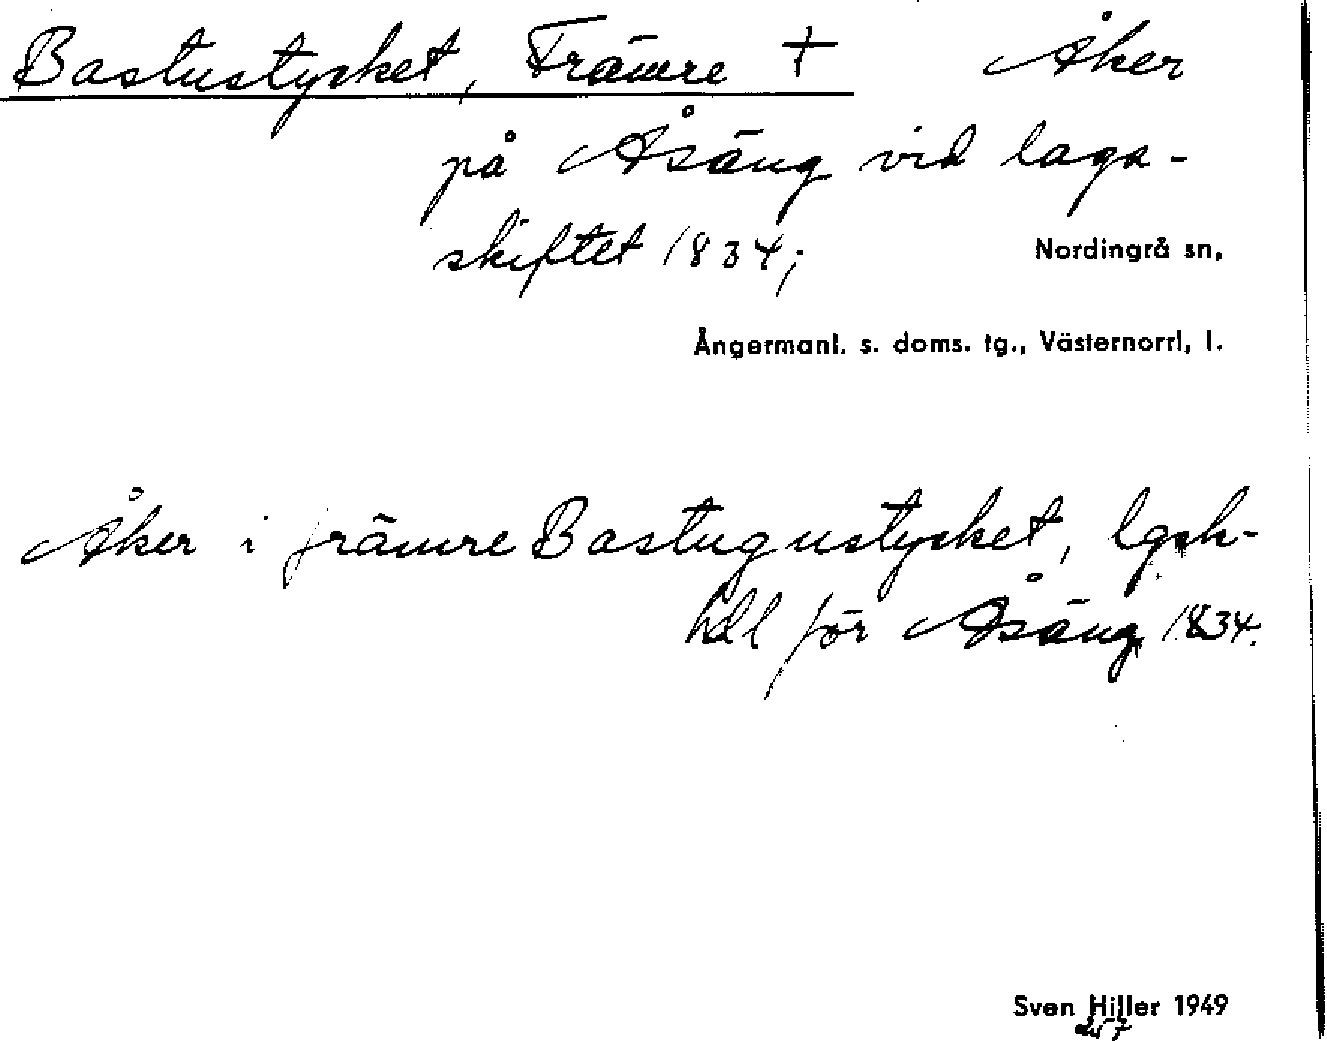 Bastustycket, Främre + Åker
på Åsäng vid laga-
skiftet 1834;
Nordingrå sn,
Ångermanl. s. doms. tg., Västernorrl, l.
Åker i främre Bastugustycket, lgsk-
hdl för Åsäng 1834.
Sven Hiller 1949
257